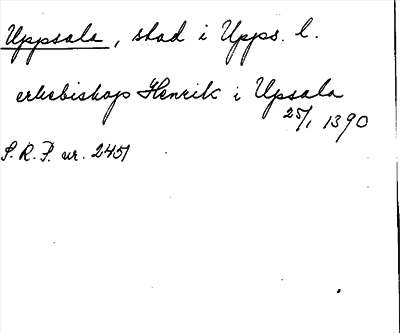 Uppsala, stad i Upps. l.
erkebiskop Henrik i Upsala
25/1 1390
S.R.P. nr. 2451